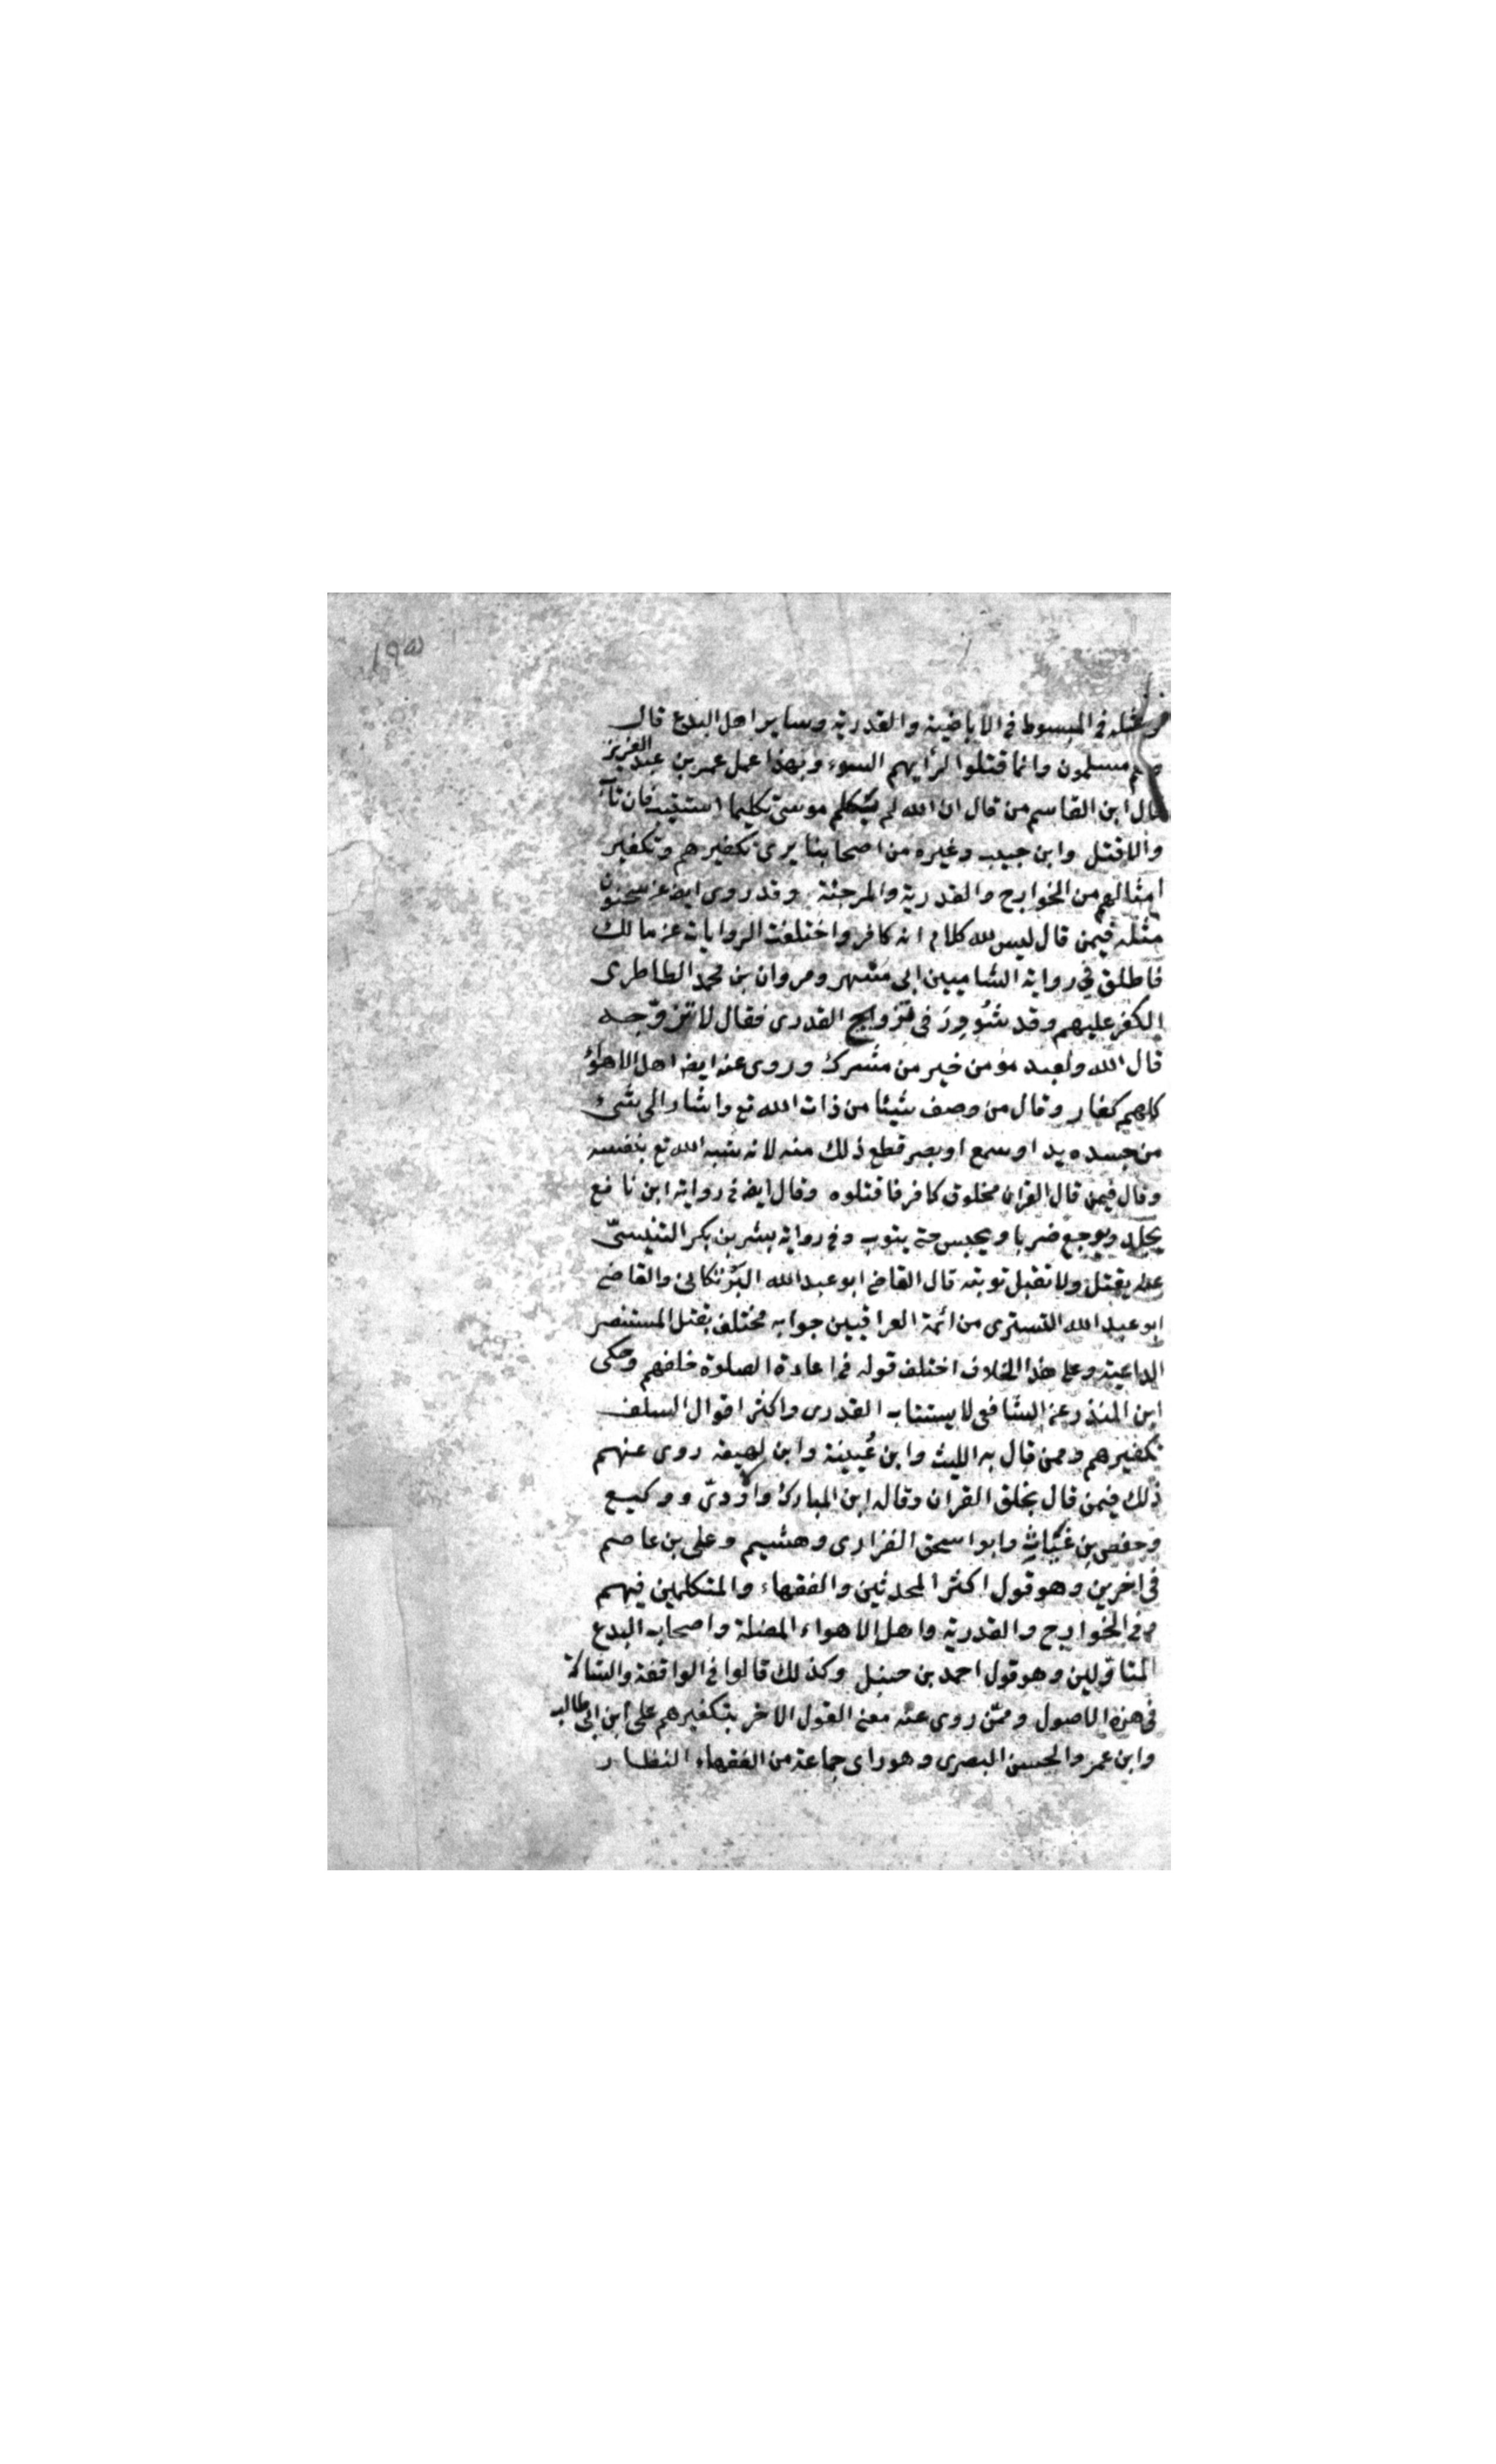 ١٩٥
مثله في المبسوط في الاباضية والقدرية وساير اهل البدع قال
وهم مسلمون وانما قتلوا لرأيهم السوء وبهذا عمل عمر بن عبد العزيز
قال ابن القاسم من قال ان الله لم يكلم موسى تكليما استتيب فان تاب
والا قتل وابن حبيب وغيره من اصحابنا يرى تكفيرهم وتكفير
امثالهم من الخوارج والقدرية والمرجئة وقد روى ايضا عن سحنون
مثله فيمن قال ليس لله كلام انه كافر واختلفت الروايات عن مالك
فاطلق في رواية الشاميين ابى مسهر ومروان بن محمد الطاطرى
الكفر عليهم وقد شُووِرَ في تزويج القدرى فقال لا تزوّجه
قال الله ولعبد مؤمن خير من مشرك وروى عنه ايضا اهل الاهواء
كلهم كفار وقال من وصف شيئا من ذات الله تع واشار الى شئ
من جسده يد او سمع او بصر قطع ذلك منه لانه شبه الله تع بنفسه
وقال فيمن قال القران مخلوق كافر فاقتلوه وقال ايضا في رواية ابن نافع
يجلد ويوجع ضربا ويحبس حتى يتوب وفي رواية بشر بن بكر التنيسىّ
عنه يقتل ولا تقبل توبته قال القاضى ابو عبد الله البرنكانى والقاضى
ابو عبد الله التسترى من ائمة العراقيين جوابه مختلف يقتل المستنصر
الداعية وعلى هذا الخلاف اختلف قوله في اعادة الصلوة خلفهم وحكى
ابن المنذر عن الشافعى لا يستتاب القدرى واكثر اقوال السلف
تكفيرهم وممن قال به الليث وابن عُيينة وابن لهيعة روى عنهم
ذلك فيمن قال بخلق القران وقاله ابن المبارك واودىّ ووكيع
وحفص بن غياث وابو اسحق الفزارى وهشيم وعلى بن عاصم
في اخرين وهو قول اكثر المحدثين والفقهاء والمتكلمين فيهم
وفي الخوارج والقدرية واهل الاهواء المضلة واصحاب البدع
المتاولين وهو قول احمد بن حنبل وكذلك قالوا في الواقفة والشاكة
في هذه الاصول وممّن روى عنه معنى القول الاخر بتكفيرهم على ابن ابى طالب
وابن عمر والحسن البصرى وهو راى جماعة من الفقهاء النظار